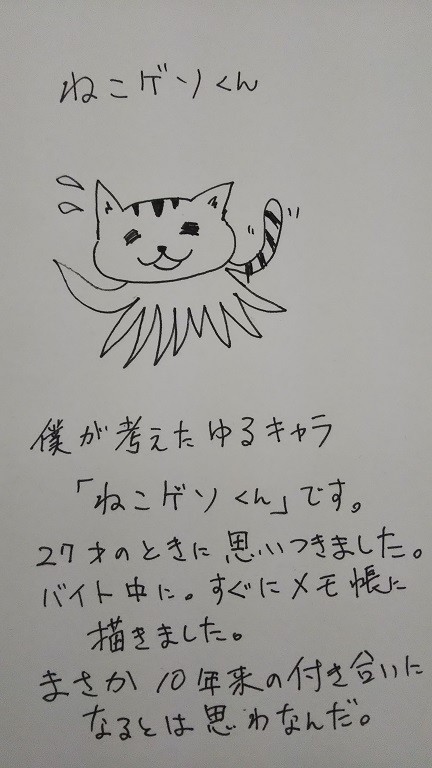 ねこゲソくん
僕が考えたゆるキャラ
「ねこゲソくん」です。
27才のときに思いつきました。
バイト中に。すぐにメモ帳に
描きました。
まさか10年来の付き合いに
なるとは思わなんだ。